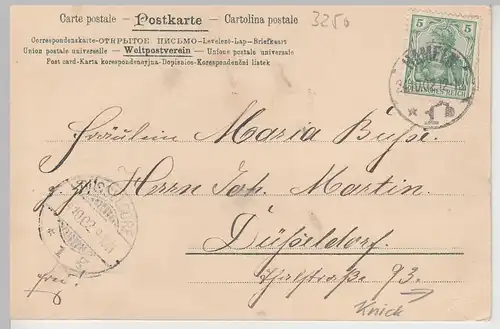 Carte postale – Postkarte – Cartolina postale
3250
Correspondenskarte-ОТКРЫТОЕ ПИСЬМО-Levelezö-Lap-Briefkaart
Union postale universelle – Weltpostverein – Unione postale universale
Post card-Karta korespondencyjna-Dopisnice-Korespondenční lístek
5 5
Fräulein Maria Buße.
Herrn Joh. Martin.
Düsseldorf.
Thalstraße 93.
frei!
Knick